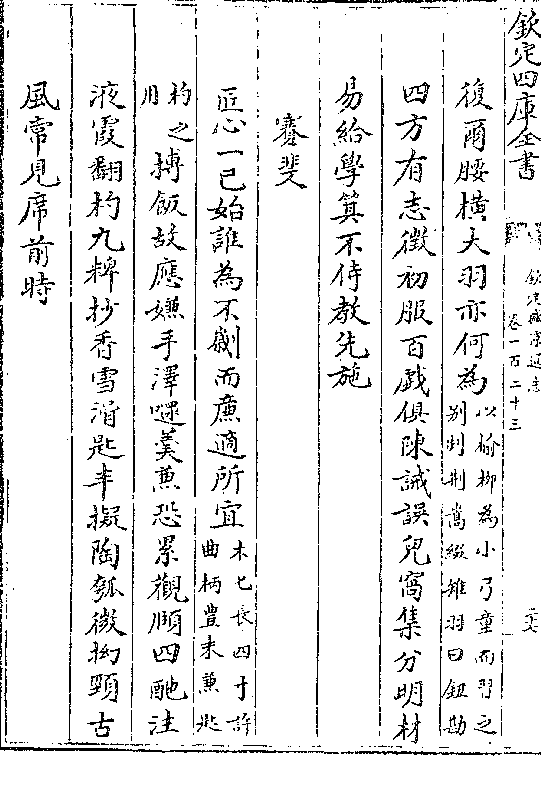 欽定四庫全書
欽定盛京通志
卷一百二十三
復爾腰橫大羽亦何為以榆柳為小弓童而習之
别制荆蒿綴雉羽曰鈕勘
四方有志徵初服百戲俱陳誡誤兒窩集分明材
易給學箕不待教先施
賽斐
匠心一已始誰為不劌而廉適所宜木匕長四寸許
曲柄豊末兼匙
杓之
用摶飯故應嫌手澤嚃羹兼恐累觀頤四酏注
液霞翻杓九粺抄香雪滑匙丰擬陶瓠微拗頸古
風常見席前時